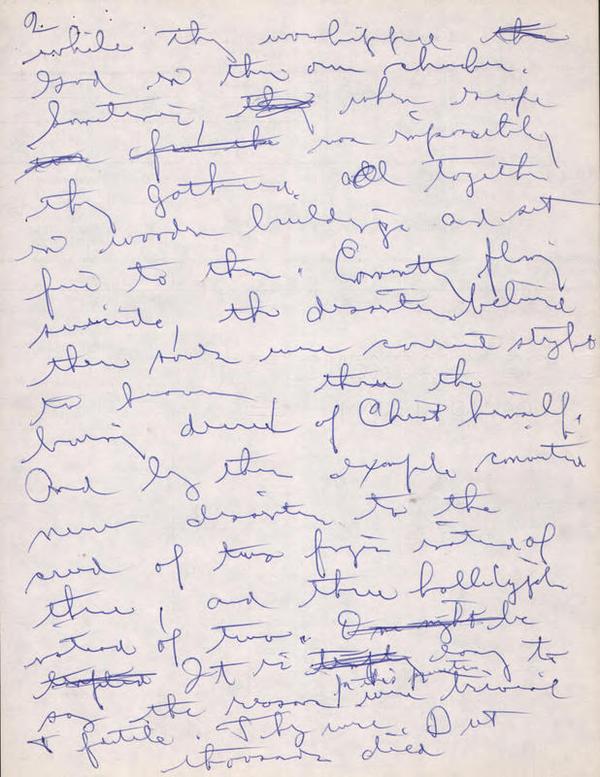 2.
while they worshipped the
God in their own churches.
Sometimes, they when escape
was impossible
they gathered all together
in wooden buildings and set
fire to them. Committing
suicide, the dissenters believed
their souls were carried straight
to heaven, thru the
burning deed of Christ himself.
And by their example converted
new dissenters to the
creed of two fingers instead of
three, and three hallelujah
instead of two. One might be
tempted It is easy to
for this position
say the reasons were trivial
+ futile. They were. But
thousands died